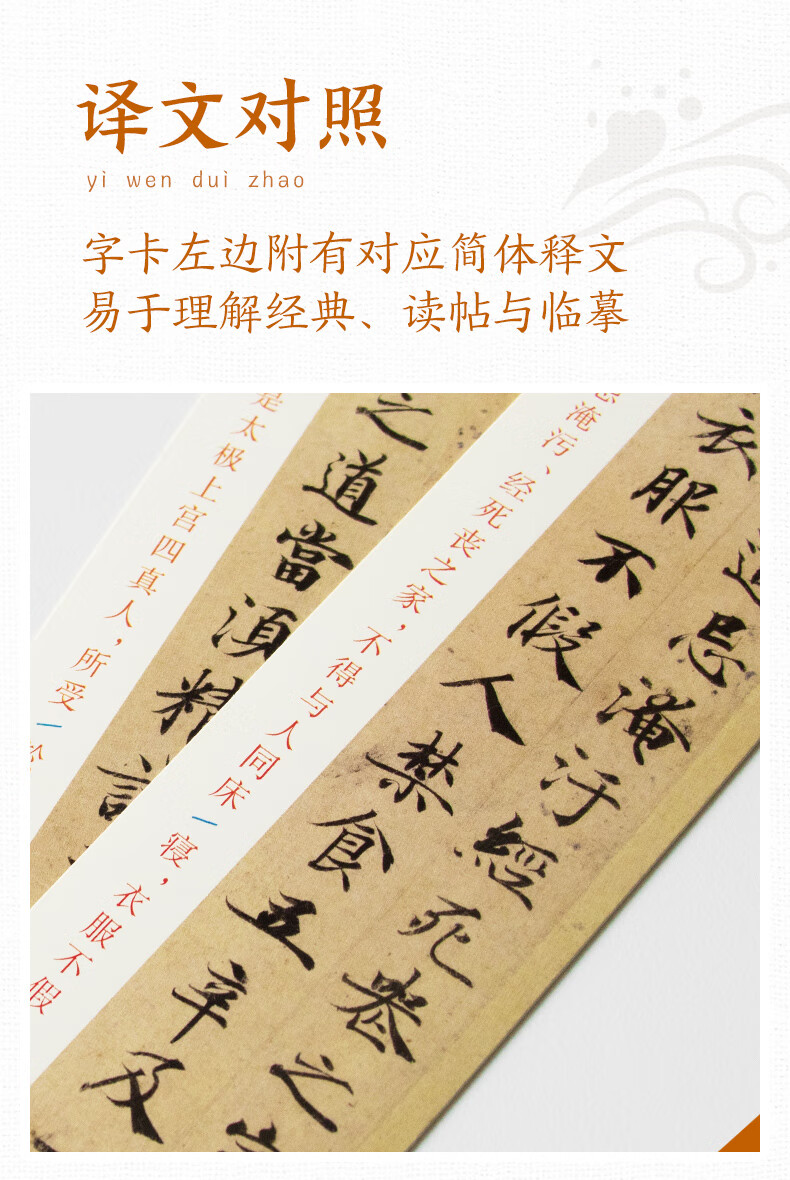 译文对照
yì wen duì zhao
字卡左边附有对应简体释文
易于理解经典、读帖与临摹
是太极上宫四真人，所受
之道當須精
淹污、经死丧之家，不得与人同床寝，衣服不假
衣服不假人禁食五辛及
忌淹汙經死喪之